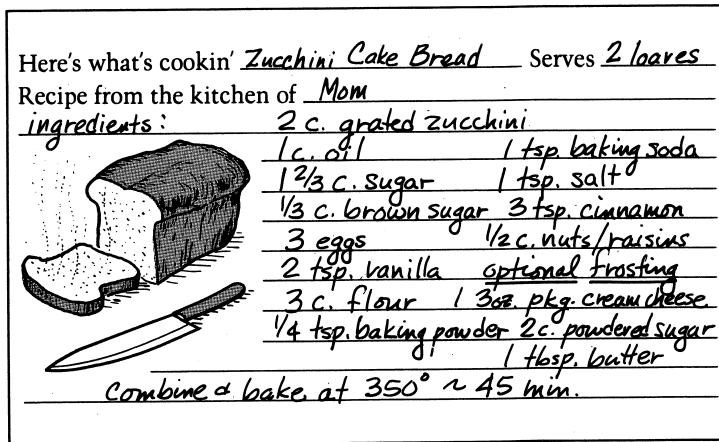 Here's what's cookin' Zucchini Cake Bread Serves 2 loaves
Recipe from the kitchen of Mom
ingredients: 2 c. grated zucchini
1 c. oil 1 tsp. baking soda
1 2/3 c. sugar 1 tsp. salt
1/3 c. brown sugar 3 tsp. cinnamon
3 eggs 1/2 c. nuts/raisins
2 tsp. vanilla optional frosting
3 c. flour 1 3oz. pkg. cream cheese
1/4 tsp. baking powder 2 c. powdered sugar
1 tbsp. butter
Combine & bake at 350° ~ 45 min.